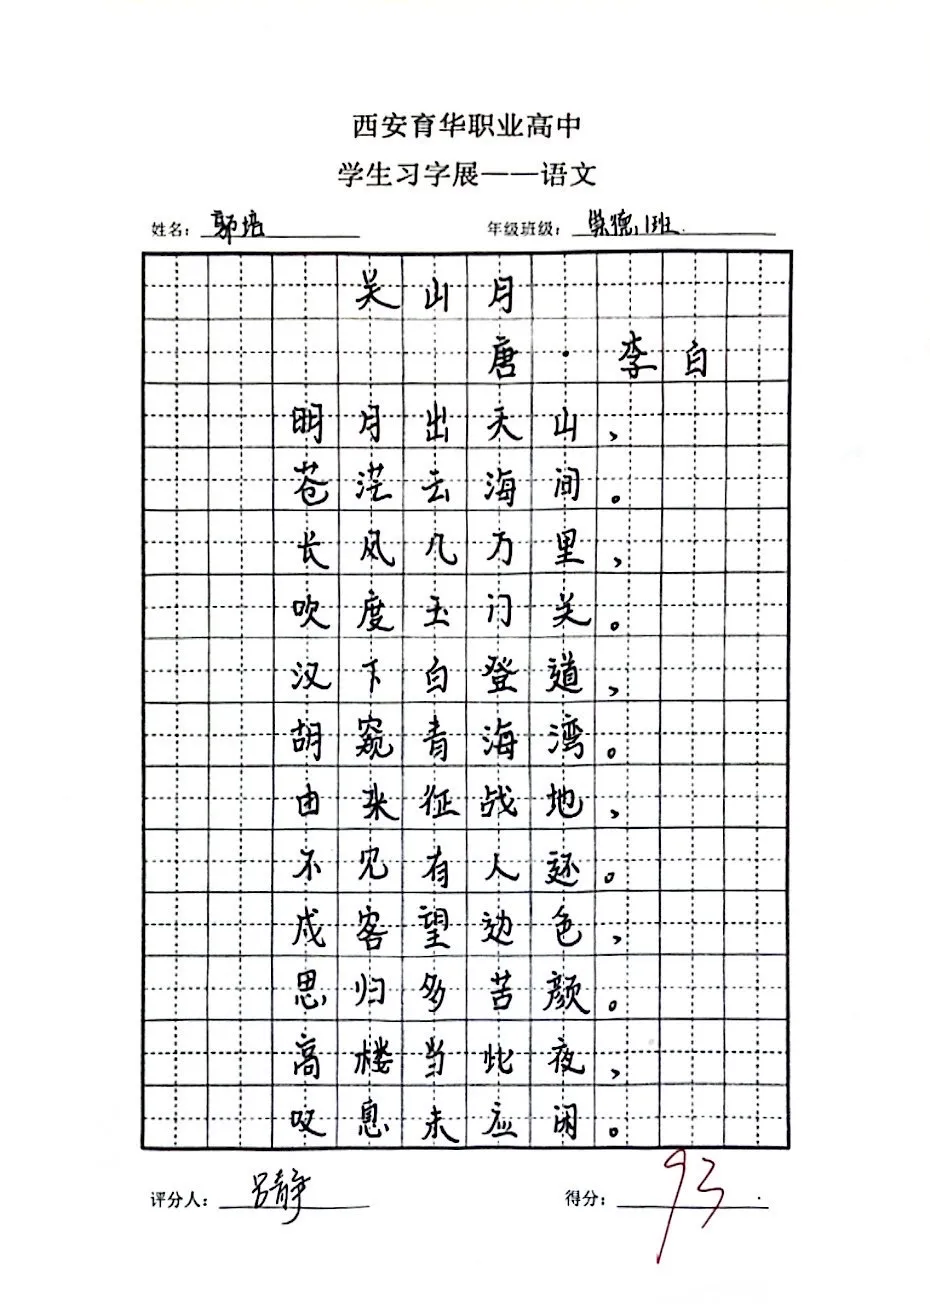 西安育华职业高中
学生习字展——语文
姓名：郭培 年级班级：崇德1班
关山月
唐·李白
明月出天山，
苍茫去海间。
长风几万里，
吹度玉门关。
汉下白登道，
胡窥青海湾。
由来征战地，
不见有人还。
戍客望边色，
思归多苦颜。
高楼当此夜，
叹息未应闲。
评分人：吕静 得分：93